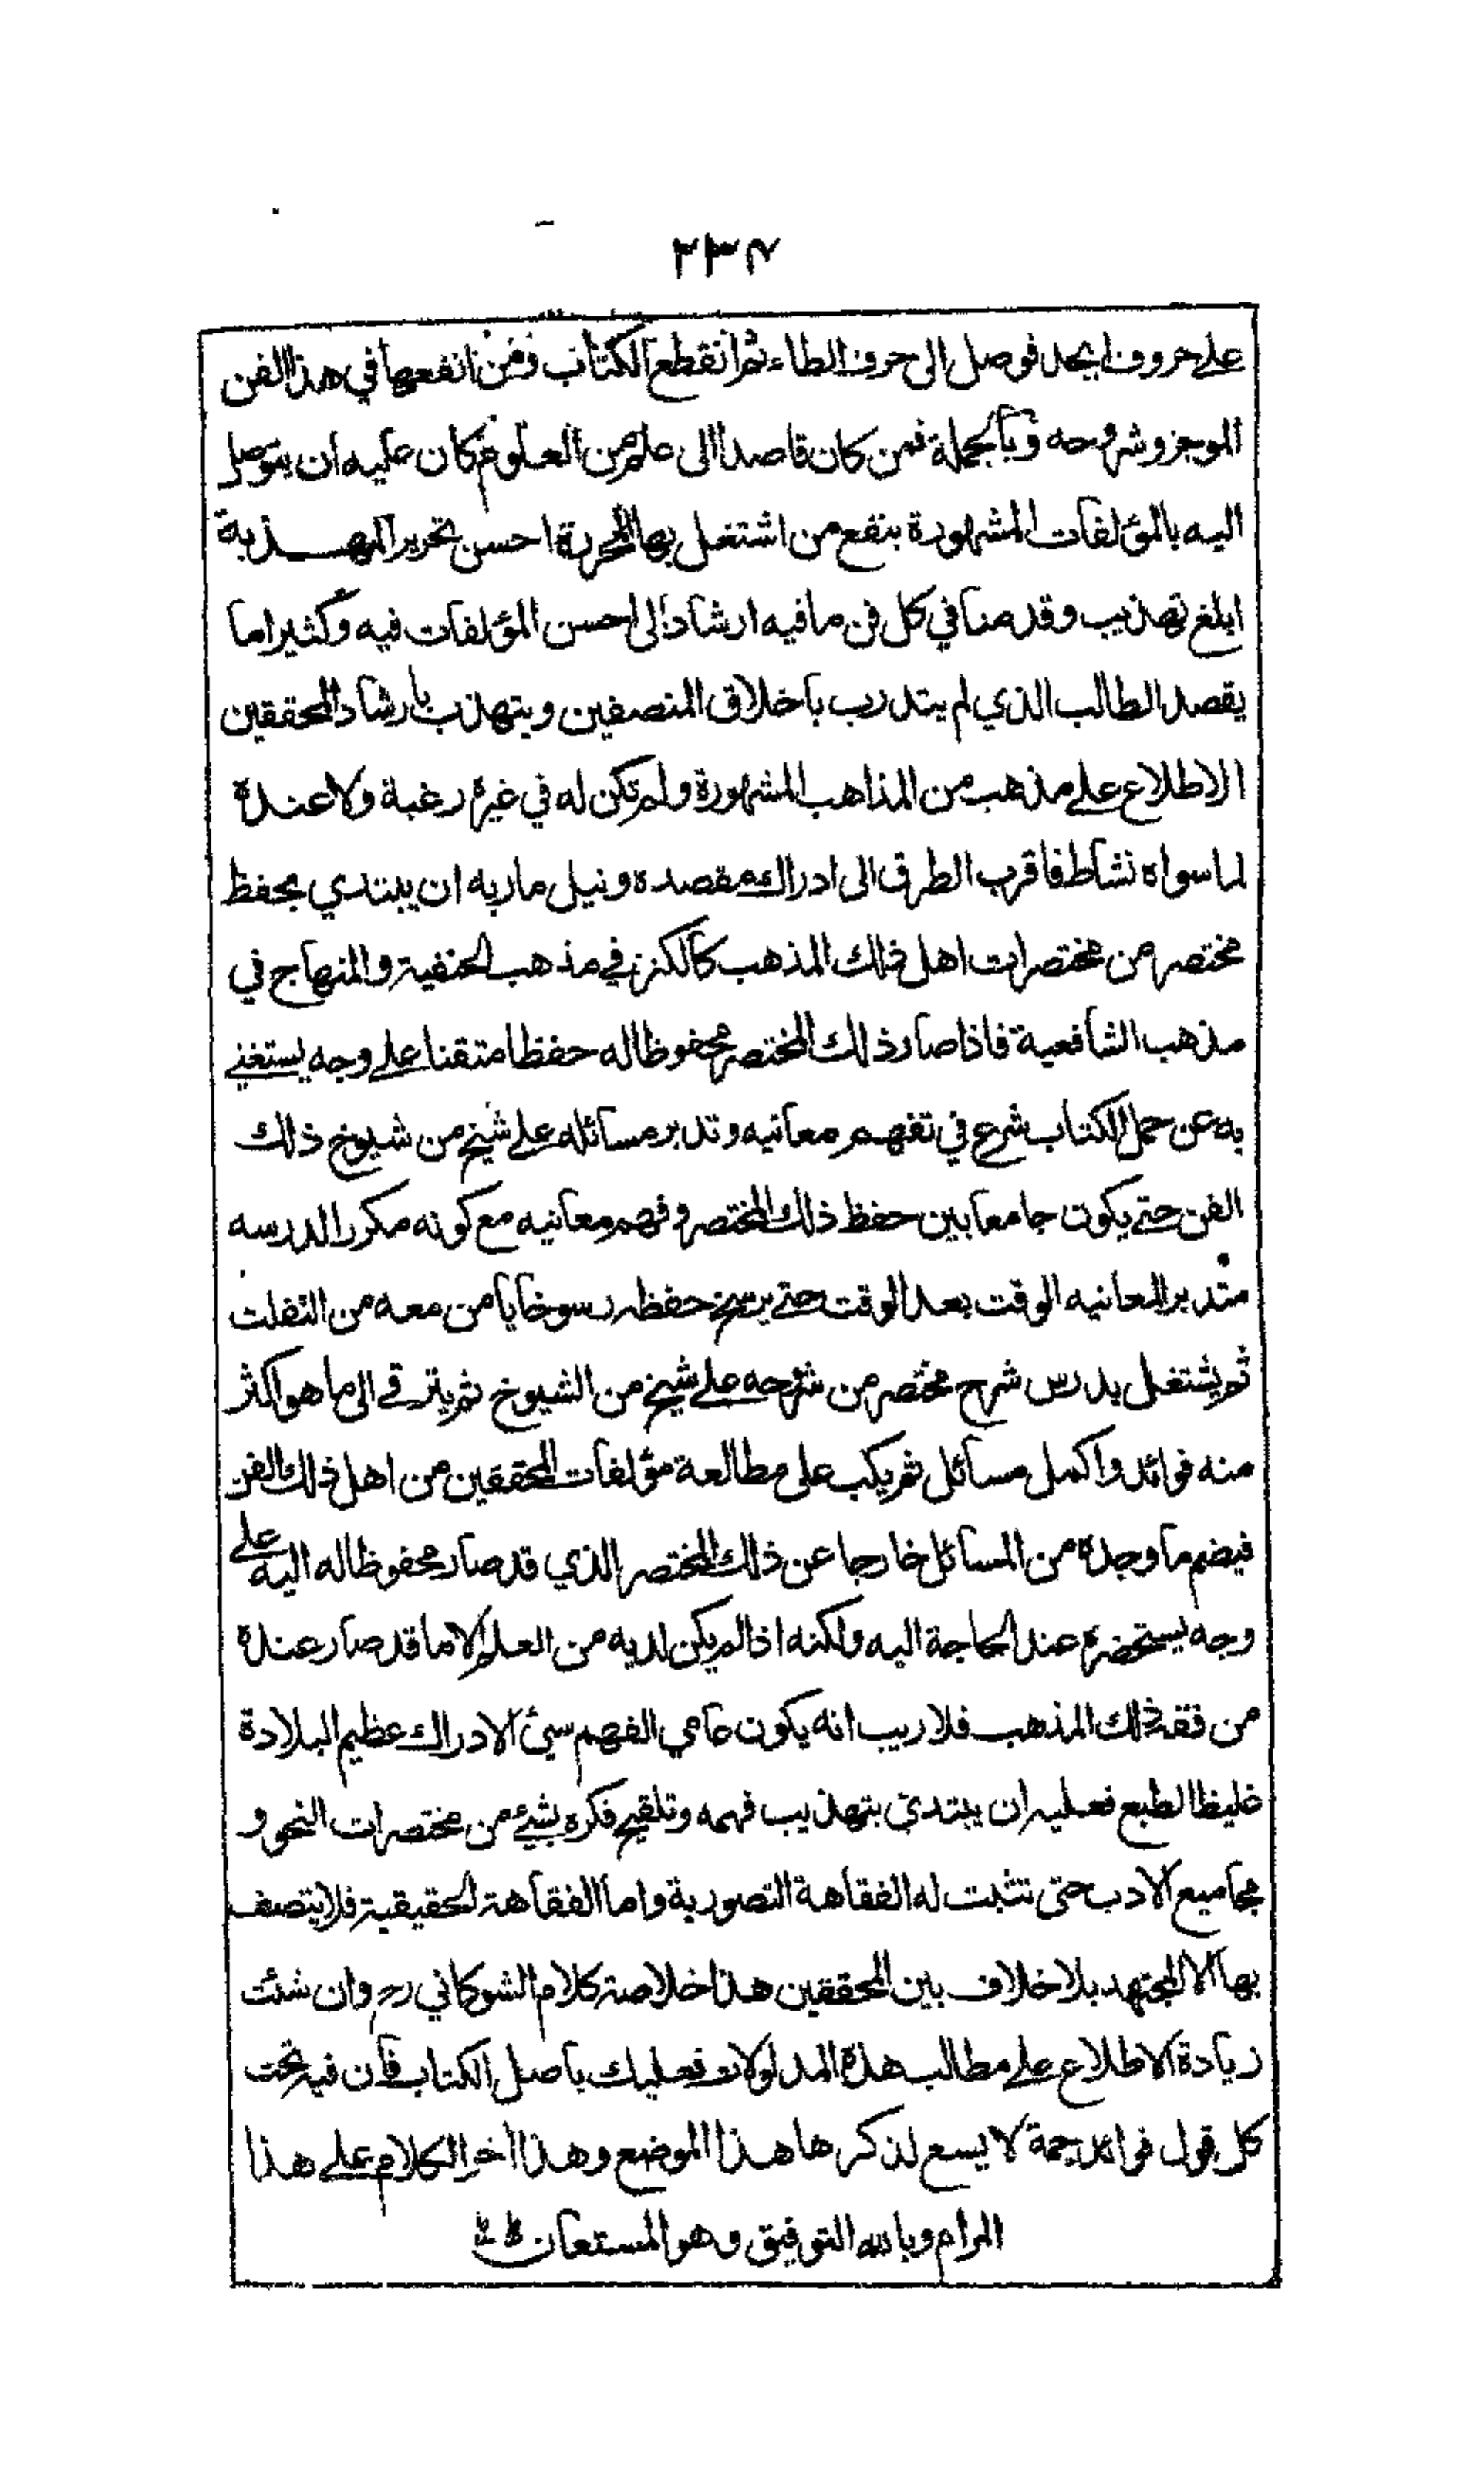 ٢٣٧
على حروف ابجد فوصل الى حرف الطاء ثم انقطع الكتاب ومن انفعها في هذا الفن
الموجز وشروحه وبالجملة فمن كان قاصدا الى علم من العلوم كان عليه ان يتوصل
اليه بالمؤلفات المشهورة بنفع من اشتغل بها المحررة احسن تحرير المهــذبة
ابلغ تهذيب وقد منا في كل فن ما فيه ارشاد الى احسن المؤلفات فيه وكثيرا ما
يقصد الطالب الذي لم يتدرب باخلاق المنصفين ويتهذب بارشاد المحققين
الاطلاع على مذهب من المذاهب المشهورة ولم تكن له في غيره رغبة ولا عنده
لما سواه نشاط فاقرب الطرق الى ادراك مقصده ونيل ماربه ان يبتدي بحفظ
مختصر من مختصرات اهل ذلك المذهب كالكنز في مذهب الحنفية والمنهاج في
مذهب الشافعية فاذا صار ذلك المختصر محفوظا له حفظا متقنا على وجه يستغني
به عن حمل الكتاب شرع في تفهم معانيه وتدبر مسائله على شيخ من شيوخ ذلك
الفن حتى يكون جامعا بين حفظ ذلك المختصر وفهم معانيه مع كونه مكررا لدرسه
متدبرا لمعانيه الوقت بعد الوقت حتى يرسخ حفظه رسوخا يأمن معه من التفلت
ثم يشتغل بدرس شرح مختصر من شروحه على شيخ من الشيوخ ثم يترقى الى ما هو اكثر
منه فوائد واكمل مسائل ثم يكب على مطالعة مؤلفات المحققين من اهل ذلك الفن
فيضم ما وجده من المسائل خارجا عن ذلك المختصر الذي قد صار محفوظا له اليه على
وجه يستحضره عند الحاجة اليه ولكنه اذا لم يكن لديه من العلم الا ما قد صار عنده
من فقه ذلك المذهب فلا ريب انه يكون عامي الفهم سيئ الادراك عظيم البلادة
غليظ الطبع فعليه ان يبتدئ بتهذيب فهمه وتلقيح فكره بشيء من مختصرات النحو و
مجاميع الادب حتى تثبت له الفقاهة التصورية واما الفقاهة الحقيقية فلا يتصف
بها الا المجتهد بلا خلاف بين المحققين هذا خلاصة كلام الشوكاني رح وان شئت
زيادة الاطلاع على مطالب هذه المدلولات فعليك باصل الكتاب فان فيه تحت
كل قول فوائد جمة لا يسع لذكرها هذا الموضع وهذا اخر الكلام على هذا
المرام وبالله التوفيق وهو المستعان